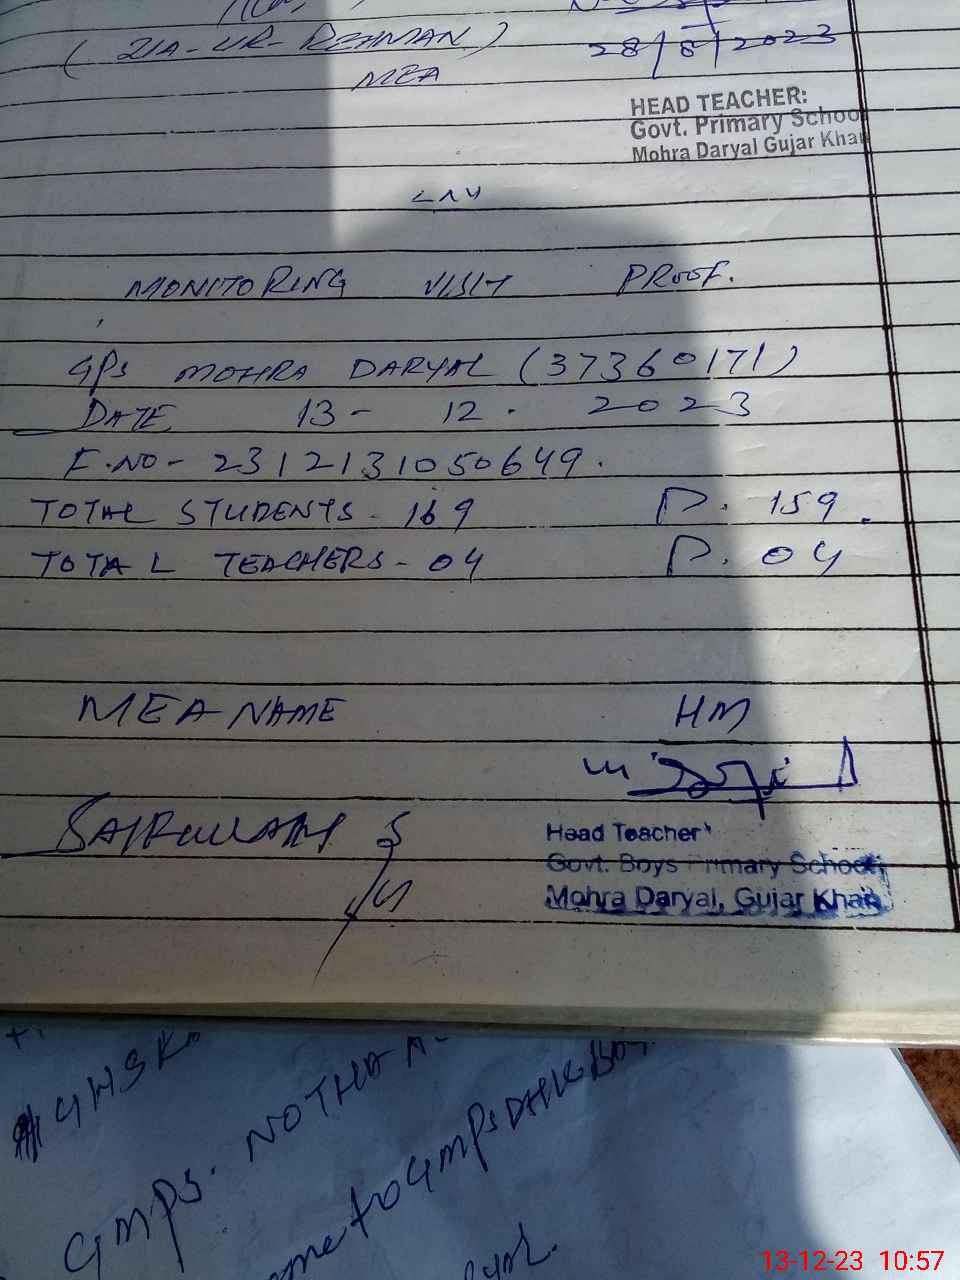 ( ZIA-UR-REHMAN )
28/8/2023
MEA
HEAD TEACHER:
Govt. Primary School
Mohra Daryal Gujar Khan
MONITORING VISIT PROOF.
GPS MOHRA DARYAL (37360171)
DATE 13- 12. 2023
F.NO- 2312131050649.
TOTAL STUDENTS- 169 P. 159.
TOTAL TEACHERS- 04 P. 04
MEA NAME HM
Head Teacher
Govt. Boys Primary School
Mohra Daryal, Gujar Khan
GMPS. NOTHA
to GMPS
13-12-23 10:57